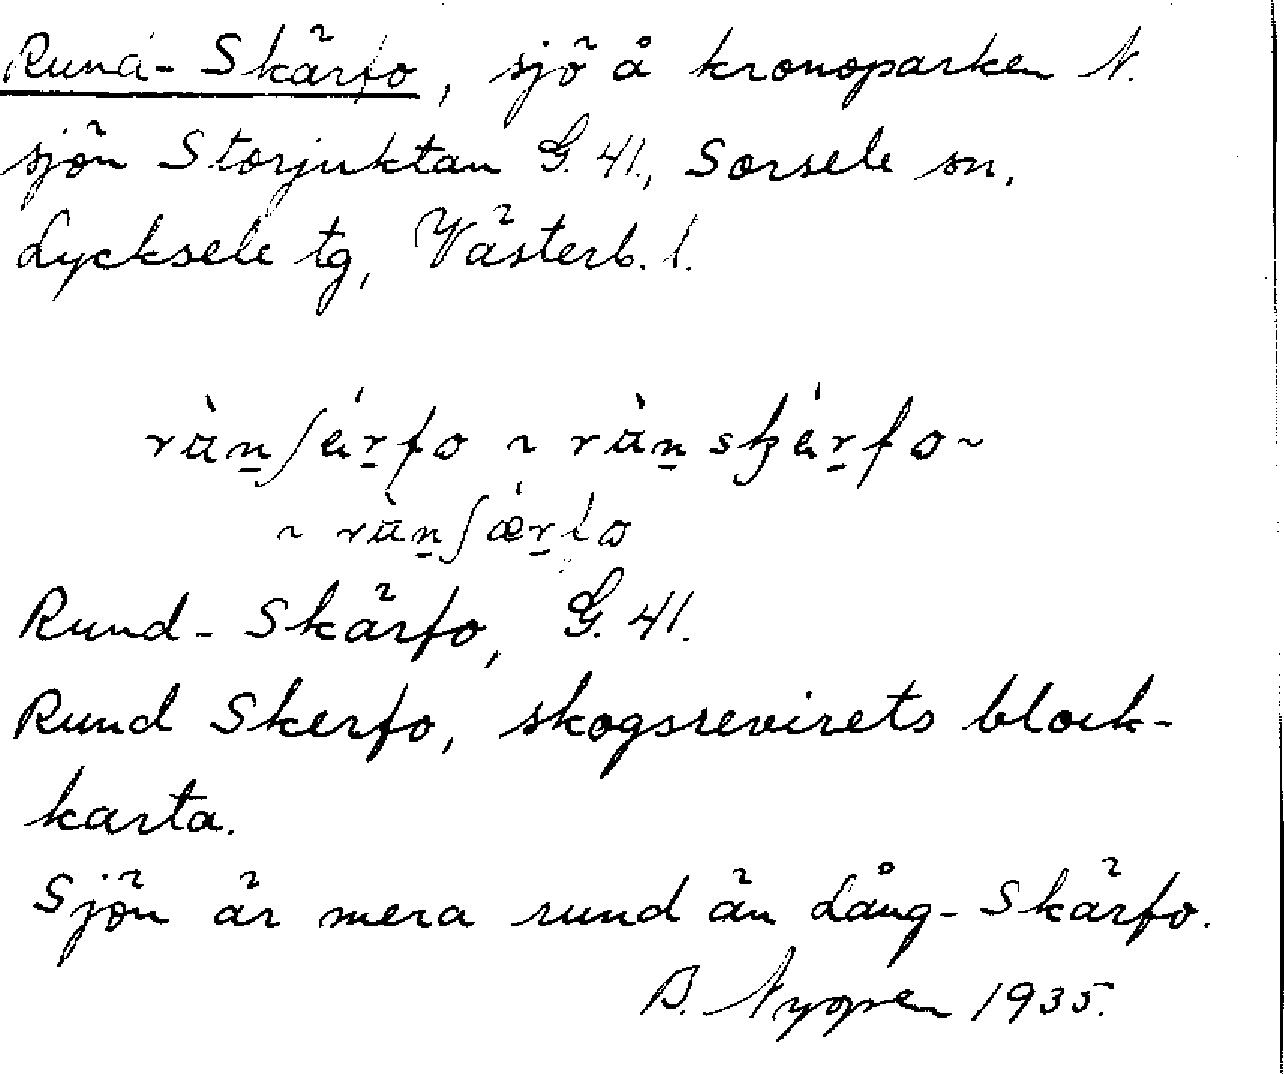 Rund-Skärfo, sjö å kronoparken N.
sjön Storjuktan G. 41., Sorsele sn,
Lycksele tg, Västerb. l.
rùn̠ʃár̠fo ~ rùn̠skár̠fo ~
~ rùn̠ʃǽr̠fo
Rund-Skärfo, G. 41.
Rund Skerfo, skogsrevirets block-
karta.
Sjön är mera rund än Lång-Skärfo.
B. Nyman 1935.